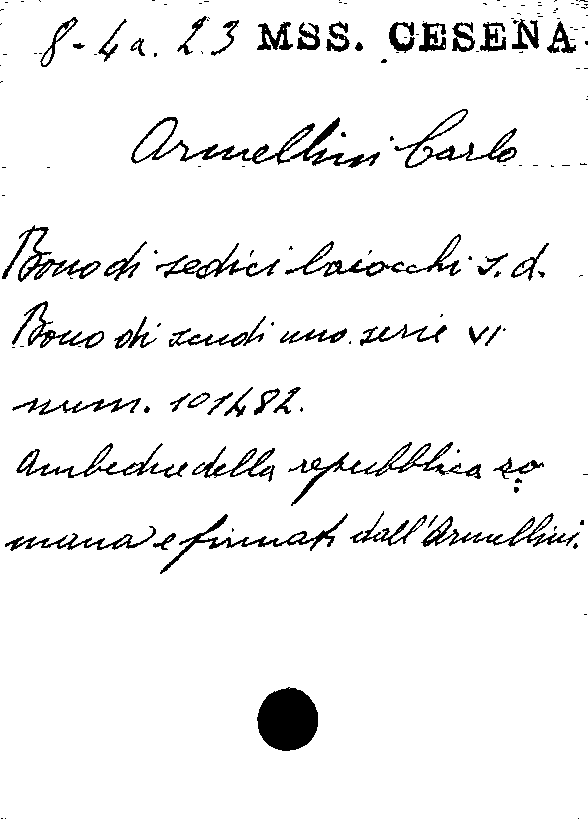 8-4a. 23 MSS. CESENA
Armellini Carlo
Bono di sedici baiocchi s.d.
Bono di scudi uno serie VI
num. 101482.
Ambedue della repubblica ro
mana e firmati dall'Armellini.